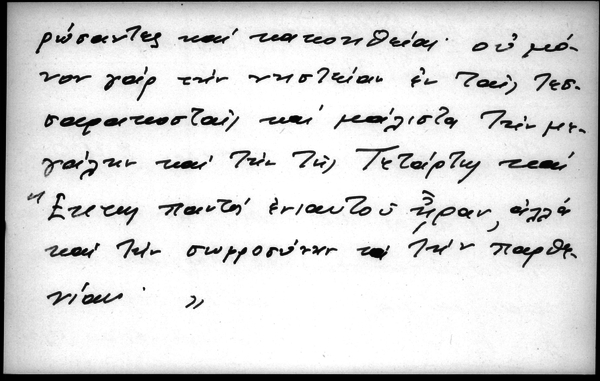 ρώσαντες καί κακοηθείαι· οὐ μό-
νον γάρ τήν νηστείαν ἐν ταῖς Τεσ-
σαρακοσταῖς καί μάλιστα τήν με-
γάλην καί τήν τῆς Τετάρτης καί
Ἕκτης παντός ἐνιαυτοῦ ἦραν, ἀλλά
καί τήν σωφροσύνην κα τήν παρθε-
νίαν· »